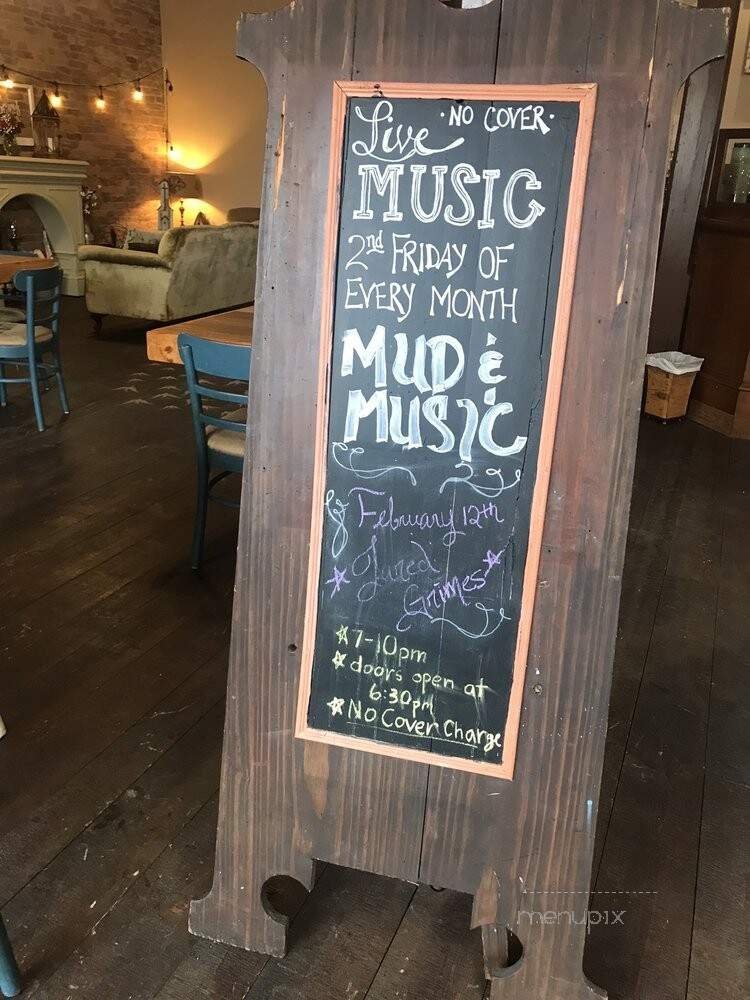 · NO COVER ·
Live
MUSIC
2nd FRIDAY OF
EVERY MONTH
MUD &
MUSIC
February 12th
Jared
Grimes
7-10pm
doors open at
6:30pm
NO Cover Charge
menupix